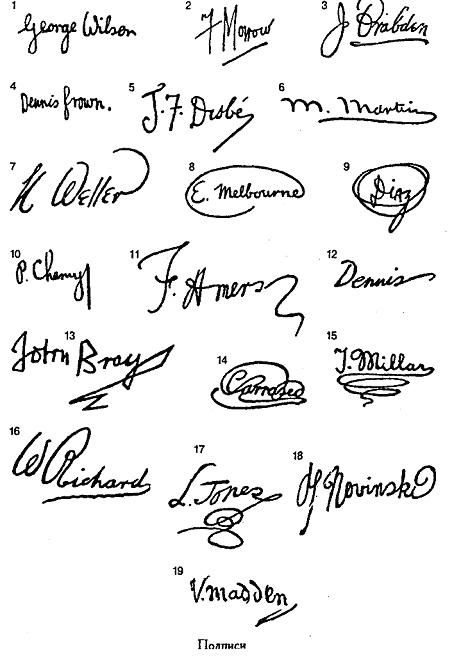 1 George Wilson
2 F Morrow
3 J Drabden
4 Dennis frown.
5 J. F. Disbé
6 M. Martin
7 K Weller
8 E. Melbourne
9 Diaz
10 P. Chamy
11 F. Amers
12 Dennis
13 John Bray
14 Carrased
15 T. Millar
16 W Richards
17 L. Jones
18 H. Novinski
19 V. madden
Подписи